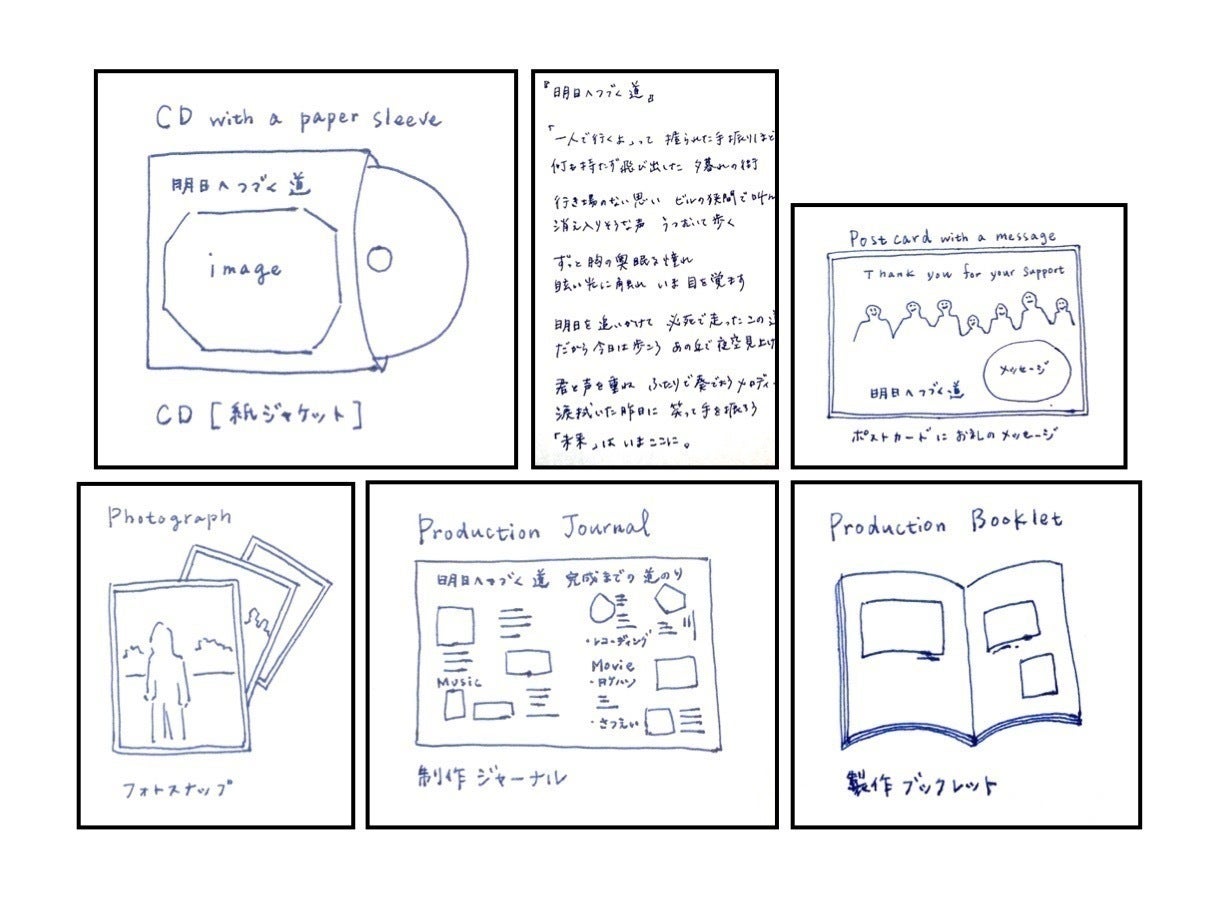 CD with a paper sleeve
明日へつづく道
image
CD [紙ジャケット]
『明日へつづく道』
「一人で行くよ」って 握られた手振りほど
何も持たず飛び出した 夕暮れの街
行き場のない思い ビルの狭間で
消え入りそうな声 うつむいて歩く
ずっと胸の奥眠る憧れ
眩い光に触れ いま 目を覚ます
明日を追いかけて 必死で走ったこの
だから今日は歩こう あの丘で夜空見上げ
君と声を重ね ふたりで奏でよう メロディー
涙拭いた昨日に 笑って手を振ろう
「未来」は いまここに。
Post card with a message
Thank you for your support
メッセージ
明日へつづく道
ポストカードに お礼のメッセージ
Photograph
フォトスナップ
Production Journal
明日へつづく道 完成までの道のり
・レコーディング
Music
Movie
・ロケハン
・さつえい
制作ジャーナル
Production Booklet
製作ブックレット